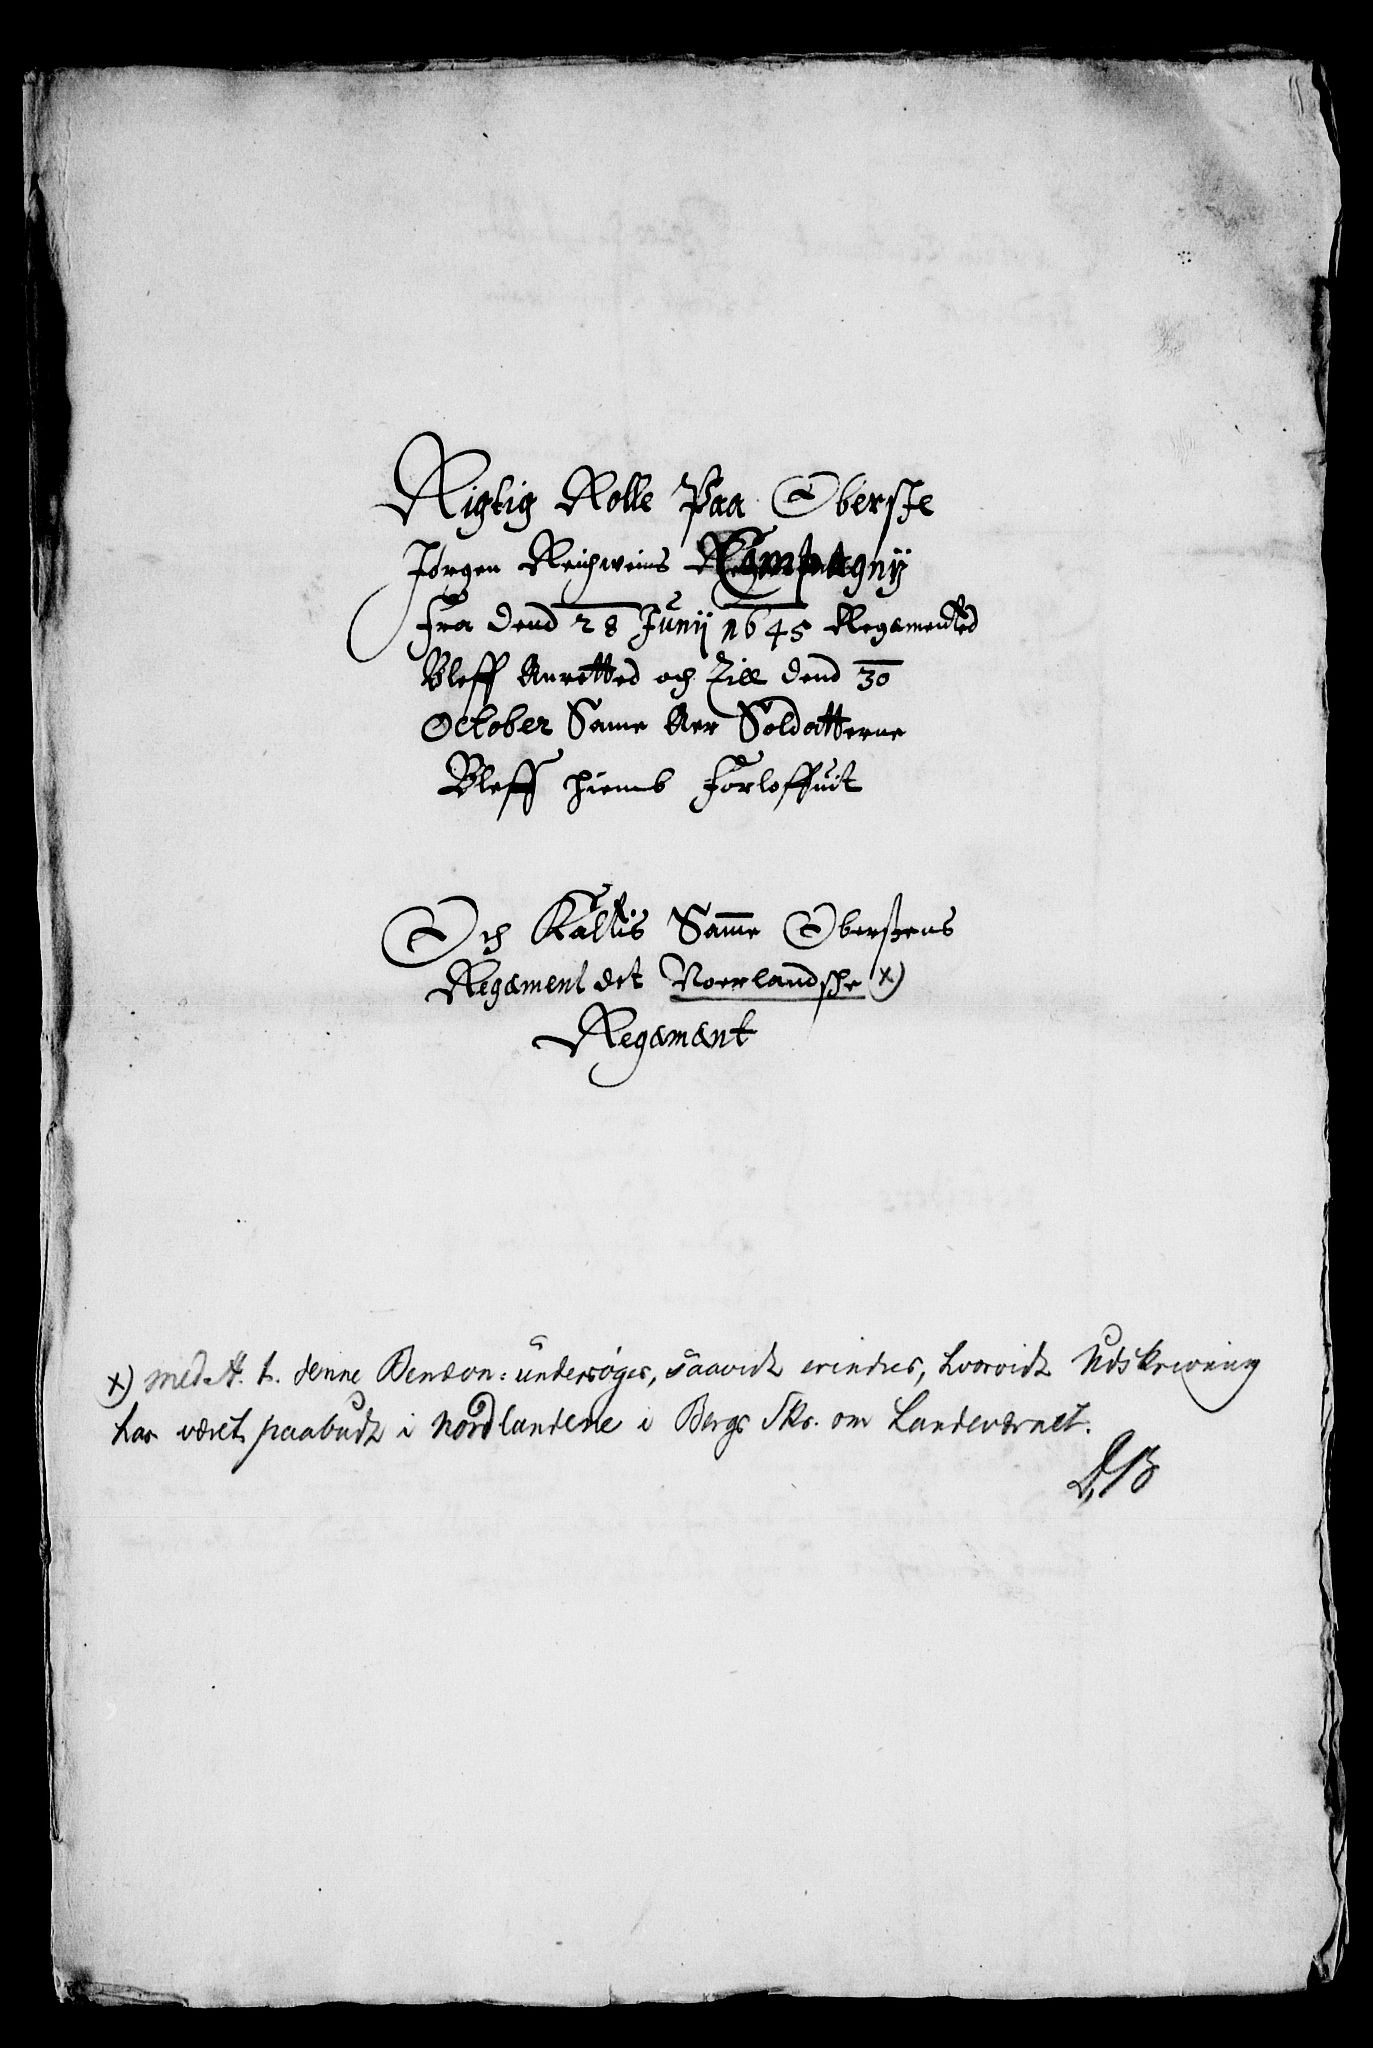 Rigtig Rolle Paa Oberste
Jørgen Reichweins Compagnij
Fra dend 28 Junij 1645 Regementted
Bleff Anretted och Till dend 30
October Same Aer Soldatterne
Bleff hiemb Forloffuit
Och Kaldis Samme Oberstens
Regament det Noerlandsche x)
Regamænt
x) Med H. t. denne Benævn: undersøges, saavidt erindres, hvorvidt Udskrivning
har været paabudt i Nordlandene i Bergs Skr. om Landeværnet.